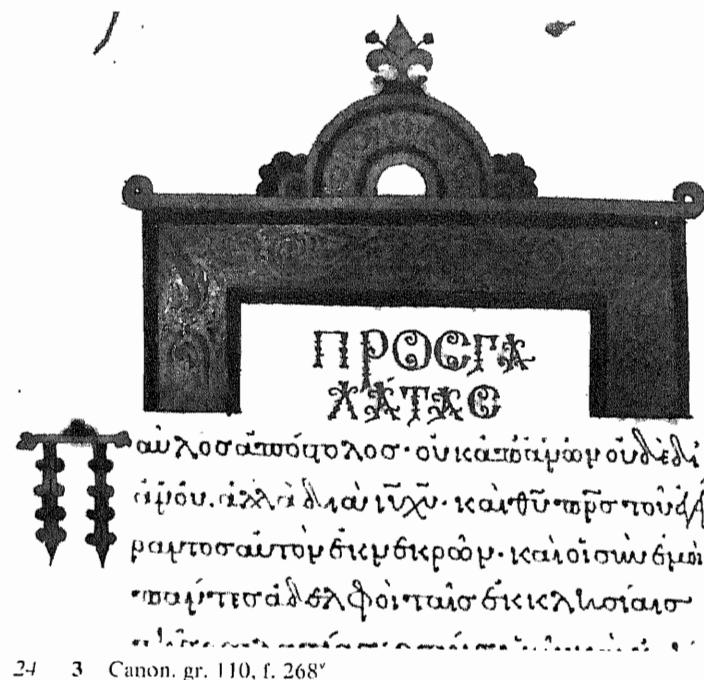 ΠΡΟΣΓΑ
ΛΆΤΑΣ
Παῦλοσ ἀπόστολοσ· οὐκ ἀπ ἀνῶν οὐδὲ δι
ἀνου. ἀλλὰ διὰ ιυ χυ· καὶ θυ πρσ τοῦ ἐγεί
ραντοσ αὐτὸν ἐκ νεκρῶν· καὶ οἱ σὺν ἐμοὶ
πάντεσ ἀδελφοὶ ταῖσ ἐκκλησίαισ
24 3 Canon. gr. 110, f. 268ᵛ